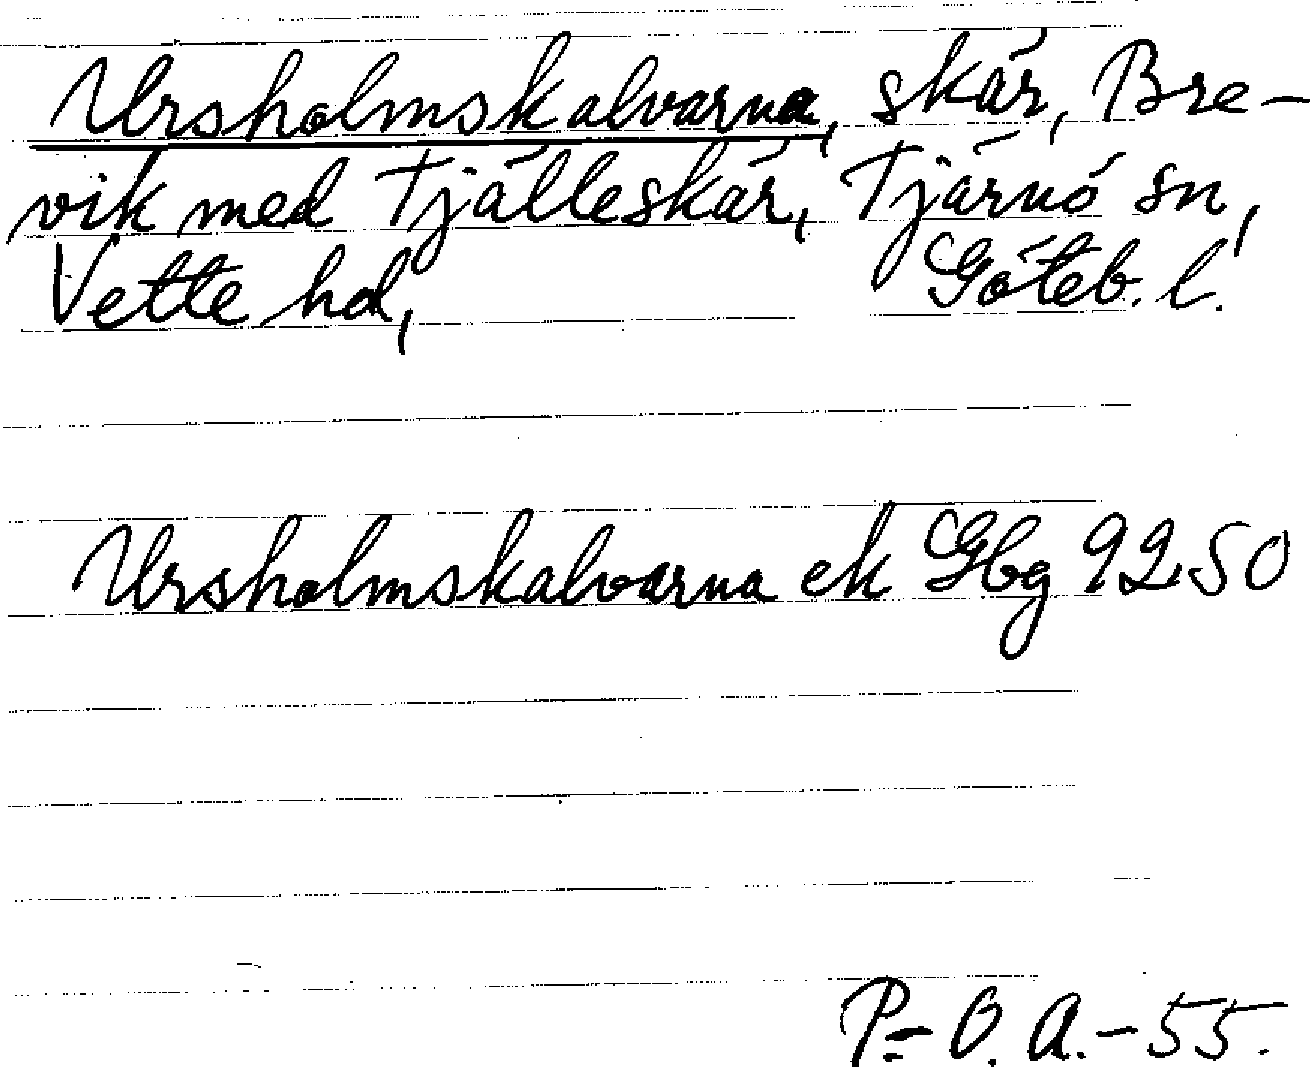 Ursholmskalvarna, skär, Bre-
vik med Tjälleskär, Tjärnö sn,
Vette hd, Göteb. l.
Ursholmskalvarna ek Gbg 9250
P-O. A. - 55.